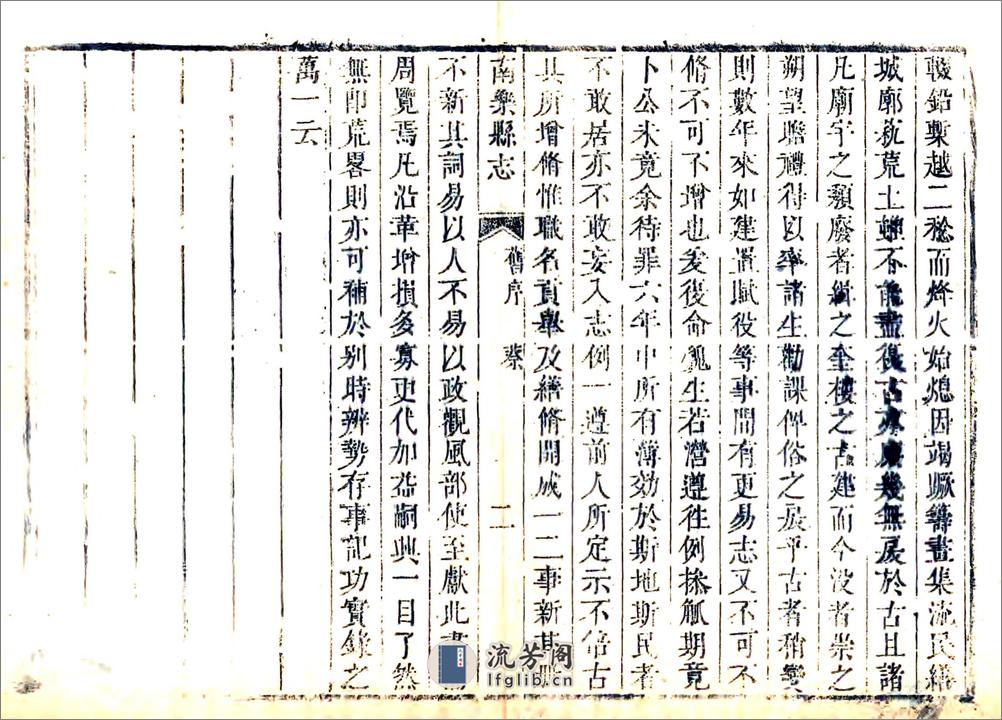 輟鉛槧越二稔而烽火始熄因竭蹶籌畫集流民繕
城廓執荒土雖不能盡復古亦庶幾無戾於古且諸
凡廟宇之頽廢者緝之奎樓之古建而今沒者崇之
朔望瞻禮得以率諸生勸課俾俗之戾乎古者稍變
則數年來如建置賦役等事間有更易志又不可不
脩不可不增也爰復命魏生若濳遵徃例操觚期竟
卜公未竟余待罪六年中所有薄効於斯地斯民者
不敢居亦不敢妄入志例一遵前人所定示不倍古
其所增脩惟職名貢舉及繕脩開成一二事新其
南樂縣志
舊序
蔡
二
不新其詞易以人不易以政觀風部使至獻此書
周覽焉凡沿革增損多寡更代加益嗣興一目了然
無卽荒畧則亦可補於别時辨勢存事記功實錄之
萬一云
流芳阁
lfglib.cn